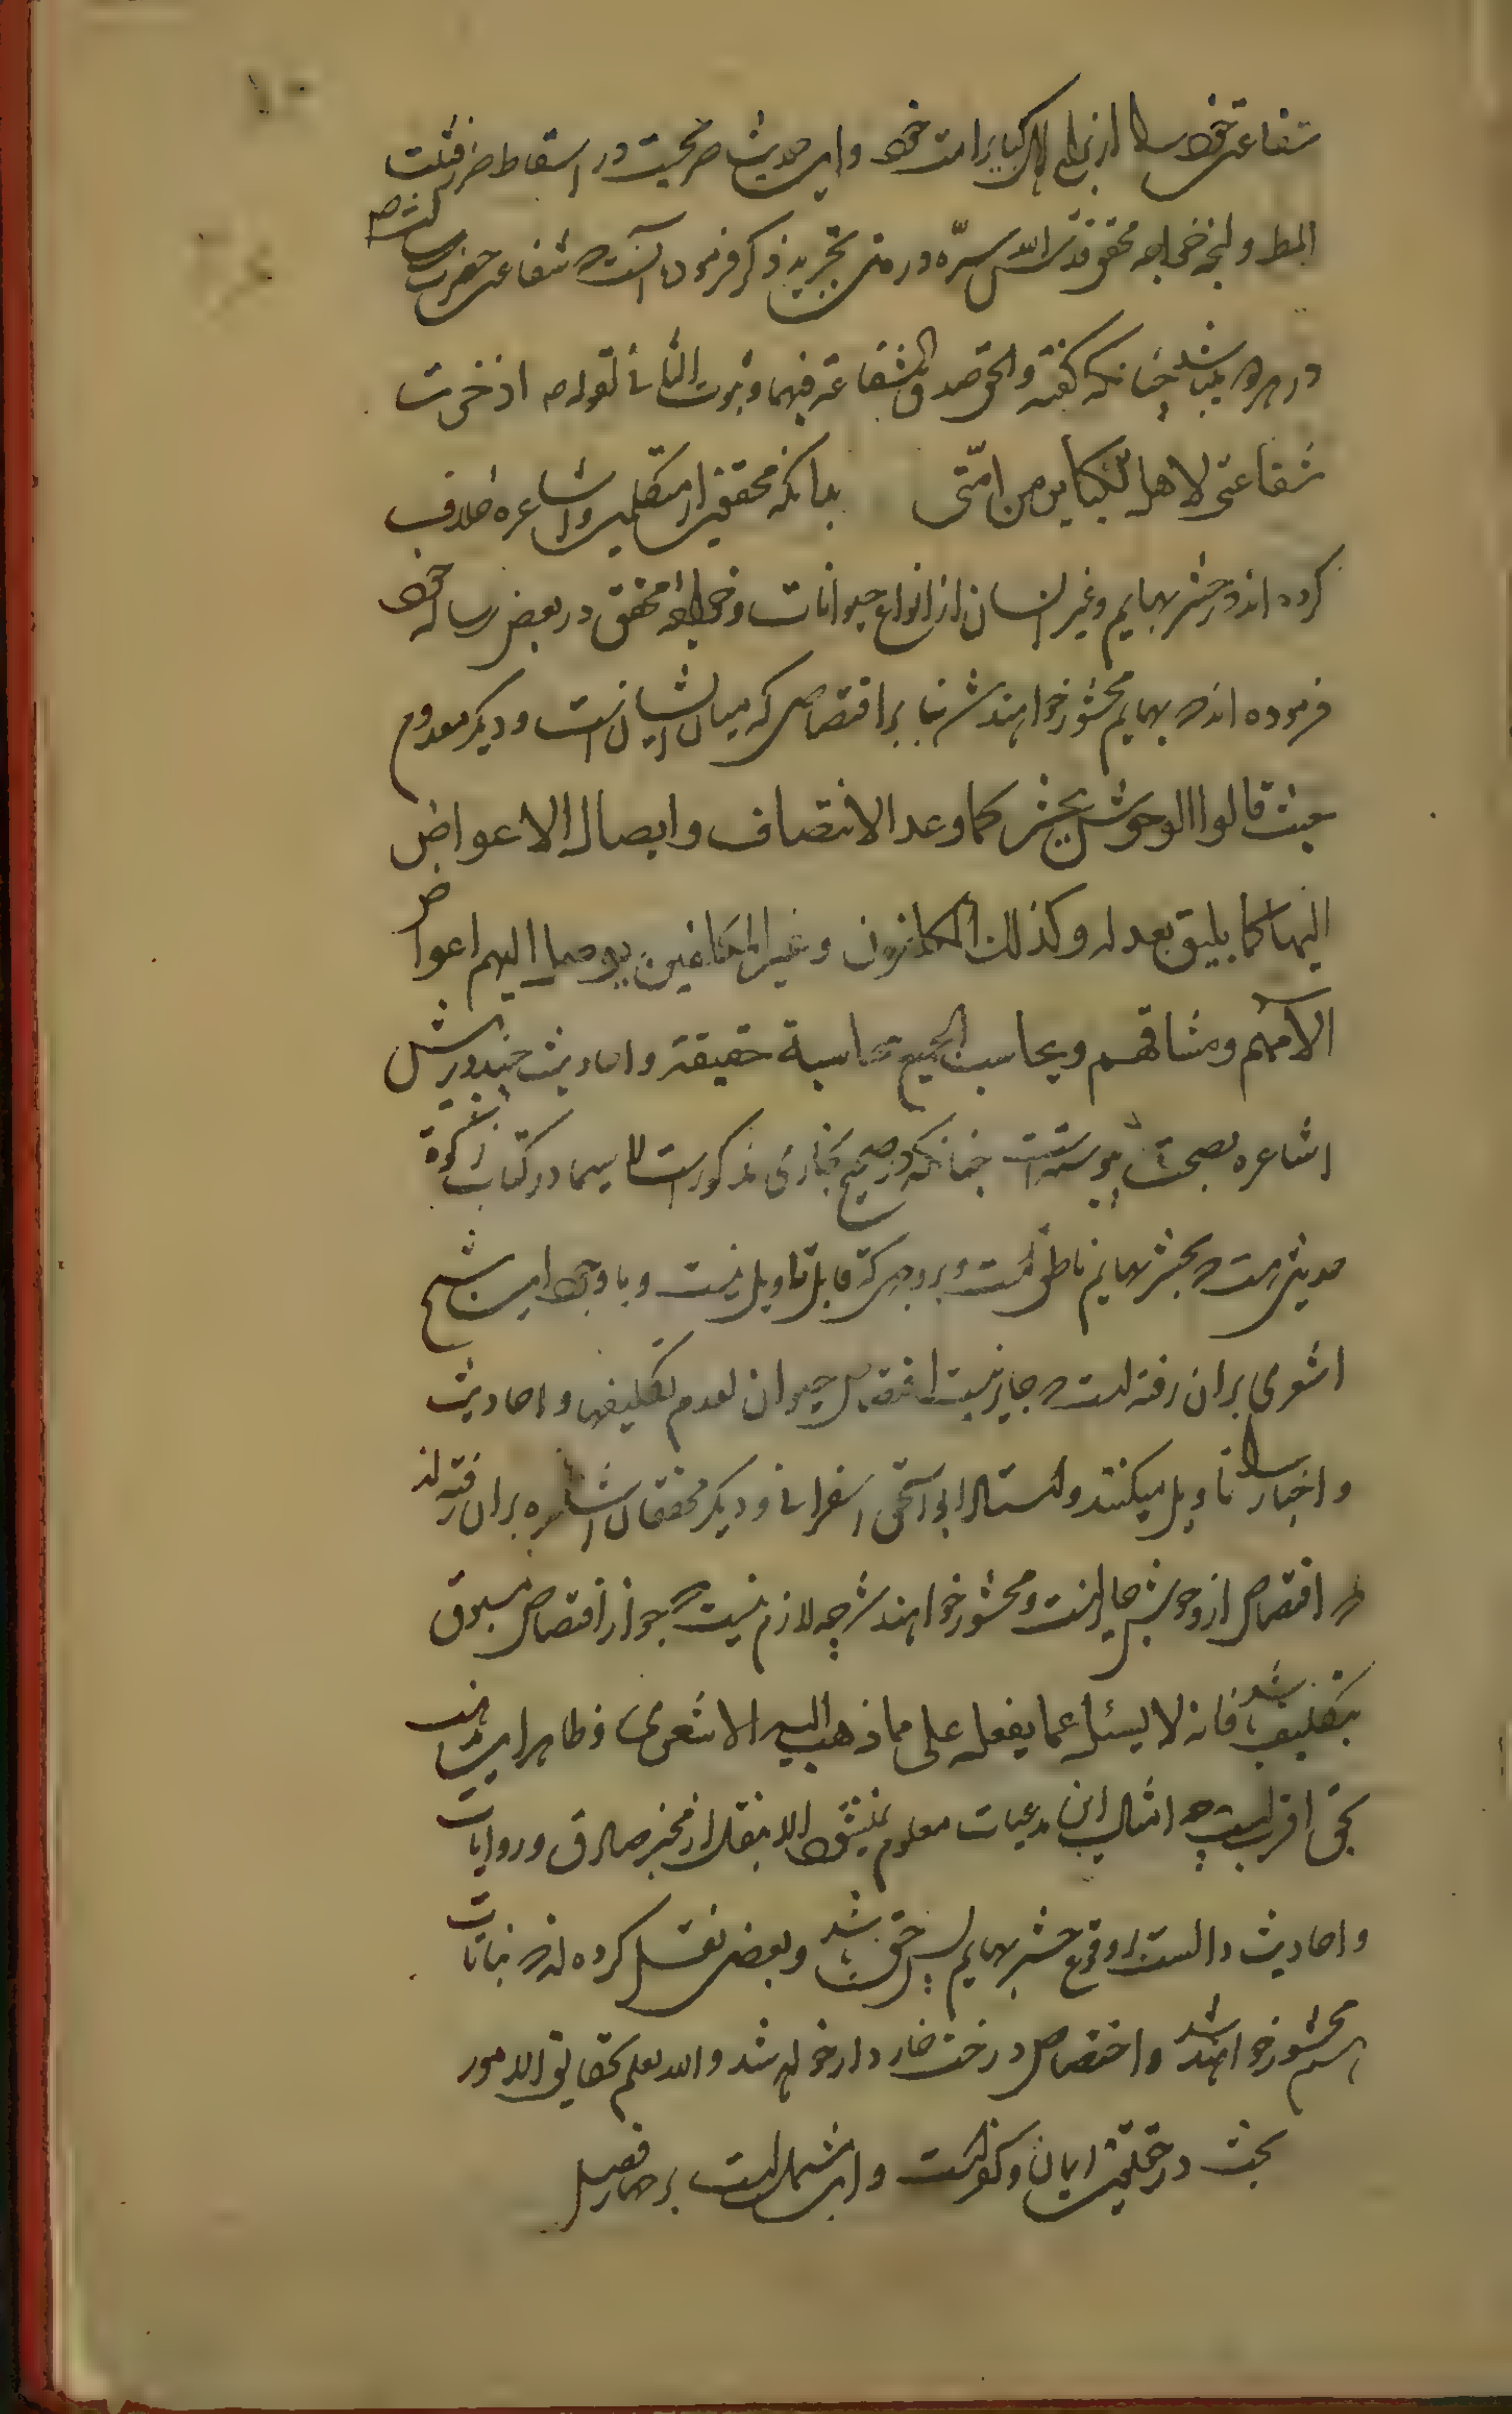 شفاعت خود را از برای اهل کبایر امت خود و این حدیث صریحست در اسقاط ضرر فثبت
المط و آنچه خواجه محقق قدس الله سرّه در متن تجرید ذکر فرموده آنست که شفاعت حضرت رسالت ص
در هر دو میباشد چنانکه گفته والحق صدق الشفاعة فیهما و ثبوت الثانی لقوله ص ادخرت
شفاعتی لاهل الکبایر من امّتی بدانکه محققین از متکلمین و اشاعره خلاف
کرده اند در حشر بهایم و غیر انسان از انواع حیوانات و خواجه محقق در بعض رساله خود
فرموده اند که بهایم محشور خواهند شد بنا بر اقتصاص که میان ایشانست و دیگر معدوم
بحیث قالوا الوحوش یحشر کما وعد الانتصاف وایصال الاعواض
الیها کما یلیق بعدله وکذلک المکلفون وغیر المکلفین یوصل الیهم اعواض
الآمهم ومشاقهم ویحاسب الجمیع محاسبة حقیقة و احادیث چند در پیش
اشاعره بصحت پیوسته است چنانکه در صحیح بخاری مذکور است لا سیما در کتاب زکوة
حدیثی هست که بحشر بهایم ناطق است و بر وجهی که قابل تاویل نیست و با وجود این شیخ
اشعری بران رفته است که جایز نیست اقتصاص حیوان لعدم تکلیفها و احادیث
و اخبار را تاویل میکنند و استاد ابو اسحق اسفراینی و دیگر محققان اشاعره بران رفته اند
که اقتصاص از وحوش جایز است و محشور خواهند شد چه لازم نیست که جواز اقتصاص مسبوق
بتکلیف باشد فانه لا یسئل عما یفعل علی ما ذهب الیه الاشعری و ظاهر این مذهب
بحق اقربست چه امثال این مدعیات معلوم نمیشود الا بنقل از مخبر صادق و روایات
و احادیث دالست بر وقوع حشر بهایم پس حق باشد و بعضی نقل کرده اند که نباتات
هم محشور خواهد شد و اختصاص درخت خاردار خواهد شد والله یعلم بحقایق الامور
بحث در حقیقت ایمان و کفر است و این مشتمل است بر چهار فصل